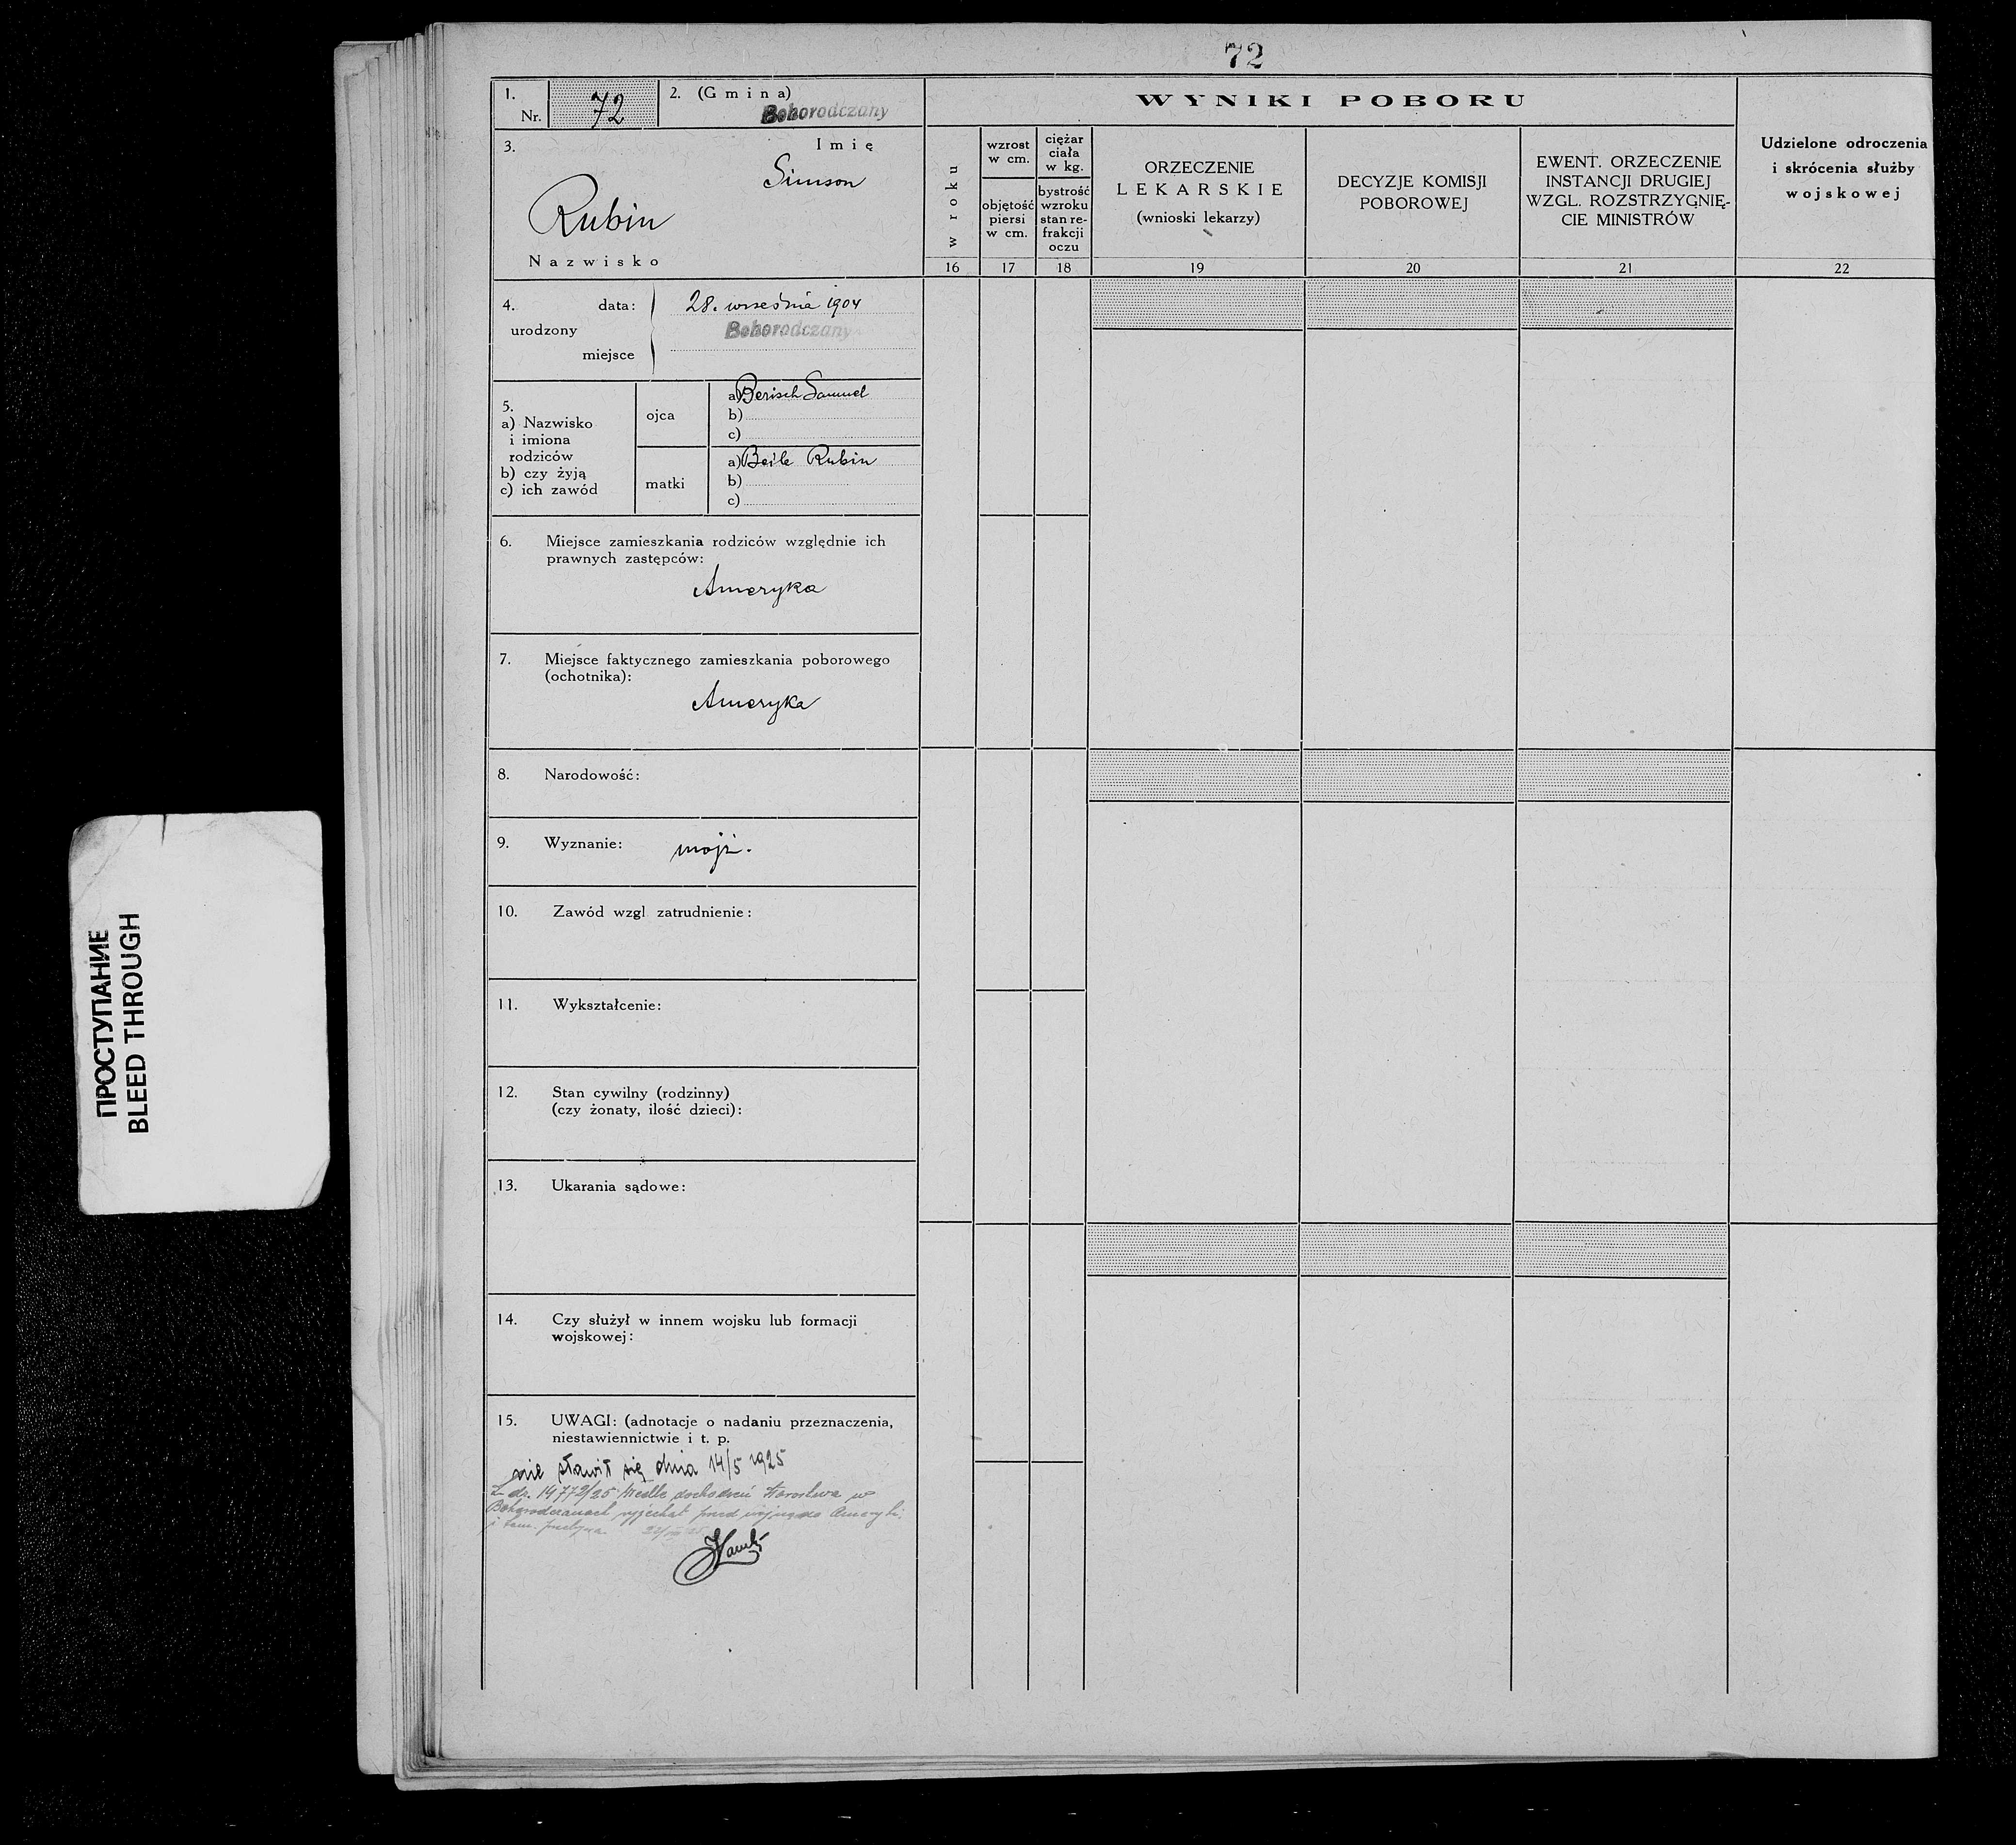 72
1.
Nr. 72
2. (Gmina)
Bohorodczany
3.
Imię
Simson
Rubin
Nazwisko
WYNIKI POBORU
w roku
wzrost
w cm.
objętość
piersi
w cm.
ciężar
ciała
w kg.
bystrość
wzroku
stan re-
frakcji
oczu
ORZECZENIE
LEKARSKIE
(wnioski lekarzy)
DECYZJE KOMISJI
POBOROWEJ
EWENT. ORZECZENIE
INSTANCJI DRUGIEJ
WZGL. ROZSTRZYGNIĘ-
CIE MINISTRÓW
Udzielone odroczenia
i skrócenia służby
wojskowej
16 17 18 19 20 21 22
4. data: 28. września 1904
urodzony
Bohorodczany
miejsce
5.
a) Nazwisko
i imiona
rodziców
b) czy żyją
c) ich zawód
ojca
a) Berisch Samuel
b)
c)
matki
a) Beile Rubin
b)
c)
6. Miejsce zamieszkania rodziców względnie ich
prawnych zastępców:
Ameryka
7. Miejsce faktycznego zamieszkania poborowego
(ochotnika):
Ameryka
8. Narodowość:
9. Wyznanie: mojż.
10. Zawód wzgl zatrudnienie:
11. Wykształcenie:
12. Stan cywilny (rodzinny)
(czy żonaty, ilość dzieci):
13. Ukarania sądowe:
14. Czy służył w innem wojsku lub formacji
wojskowej:
15. UWAGI: (adnotacje o nadaniu przeznaczenia,
niestawiennictwie i t. p.
nie stawił się dnia 14/5 1925
L. dz. 14772/25 Wedle dochodzeń Starostwa w
Bohorodczanach wyjechał przed wojną do Ameryki
i tam
ПРОСТУПАНИЕ
BLEED THROUGH